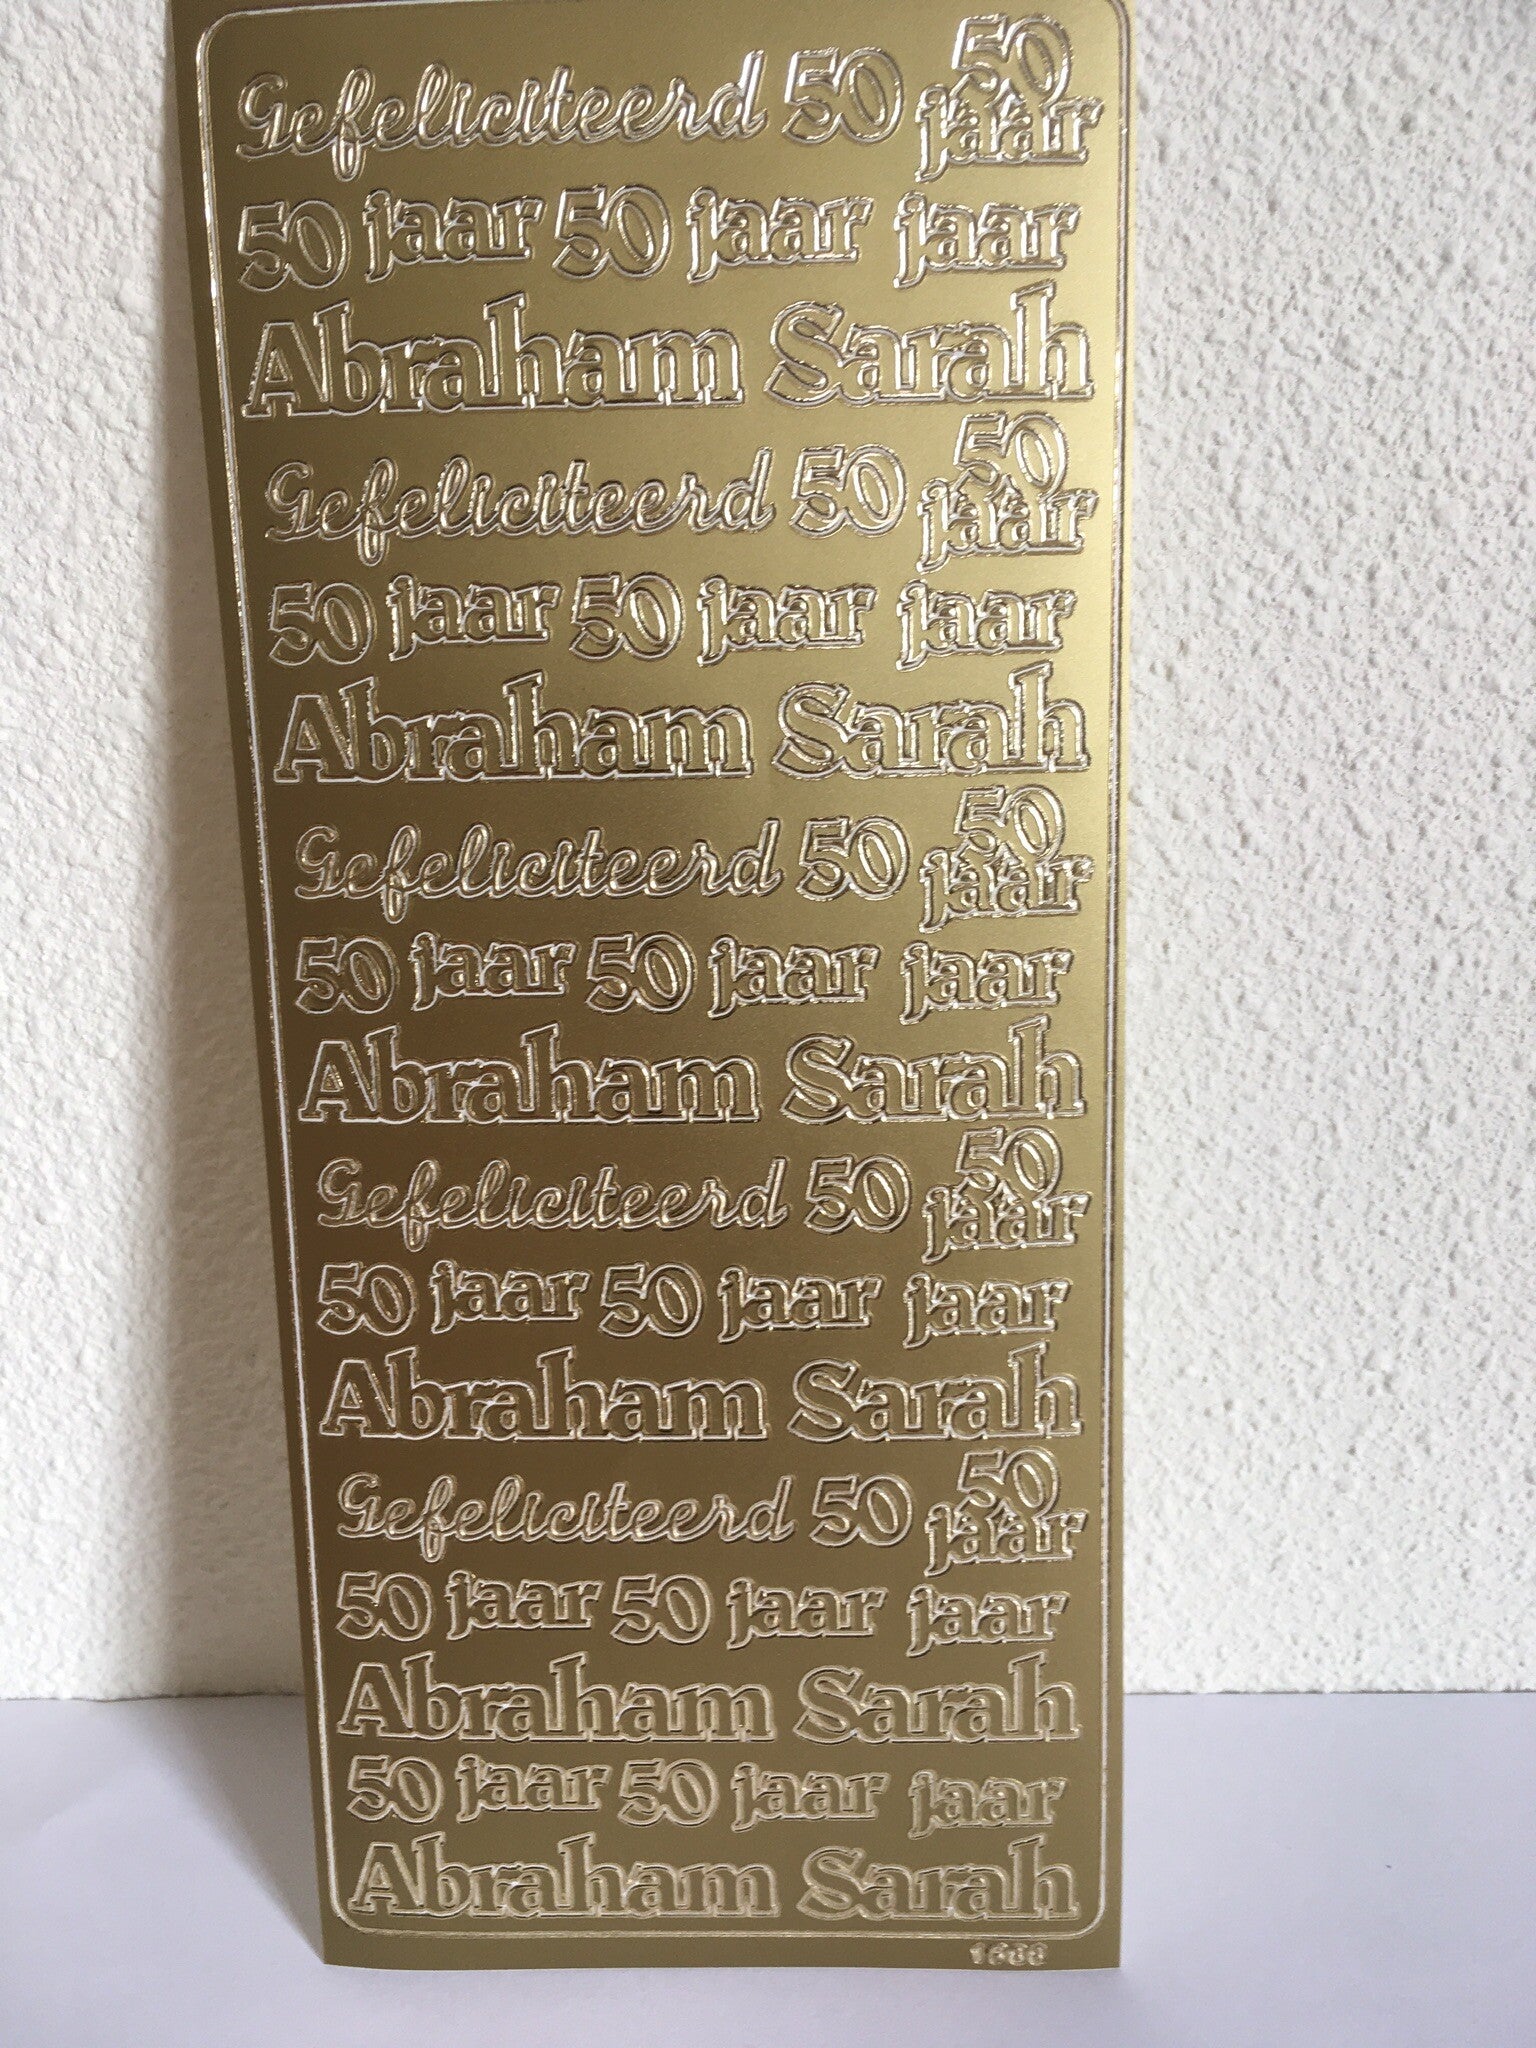 Gefeliciteerd 50 50 jaar
50 jaar 50 jaar jaar
Abraham Sarah
Gefeliciteerd 50 50 jaar
50 jaar 50 jaar jaar
Abraham Sarah
Gefeliciteerd 50 50 jaar
50 jaar 50 jaar jaar
Abraham Sarah
Gefeliciteerd 50 50 jaar
50 jaar 50 jaar jaar
Abraham Sarah
Gefeliciteerd 50 50 jaar
50 jaar 50 jaar jaar
Abraham Sarah
50 jaar 50 jaar jaar
Abraham Sarah